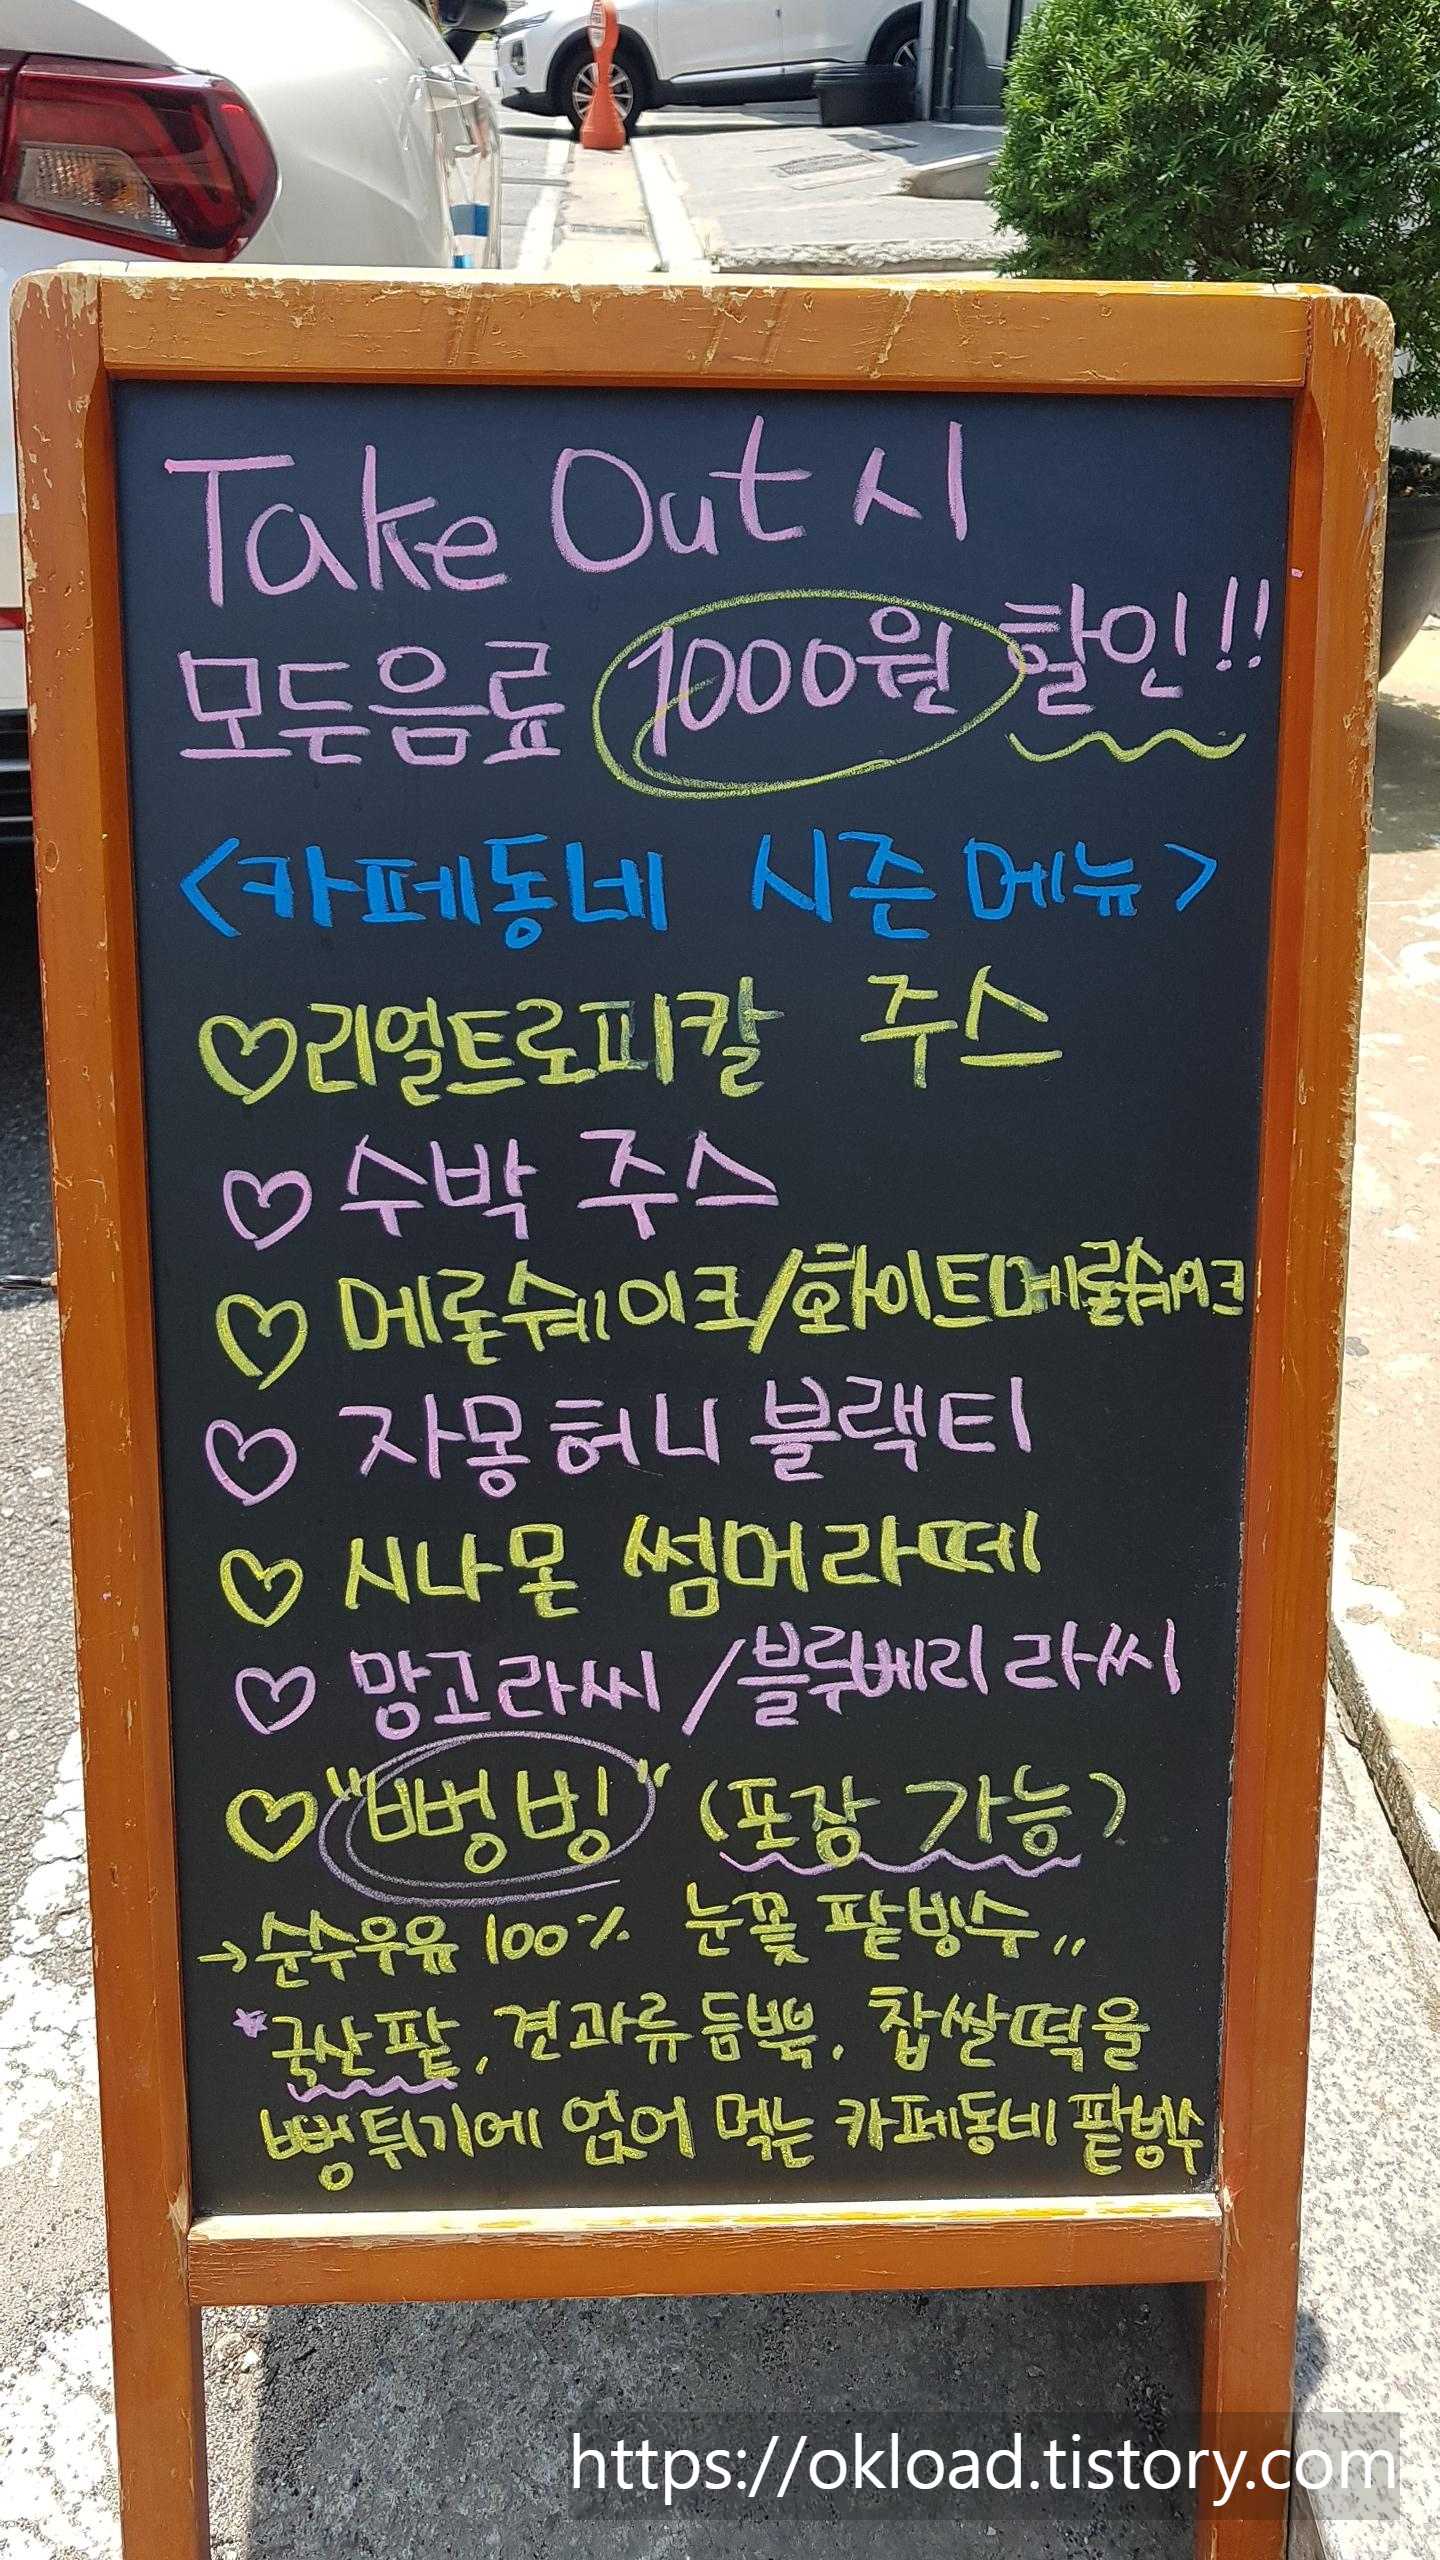 Take Out 시
모든음료 1000원 할인!!
<카페동네 시즌 메뉴>
♡리얼트로피칼 주스
♡ 수박 주스
♡ 메론쉐이크/화이트메론쉐이크
♡ 자몽허니 블랙티
♡ 시나몬 썸머라떼
♡ 망고라씨 / 블루베리 라씨
♡ "뻥빙" (포장 가능)
→순수우유 100% 눈꽃 팥빙수..
*국산팥, 견과류듬뿍, 찹쌀떡을
뻥튀기에 얹어 먹는 카페동네 팥빙수
https://okload.tistory.com